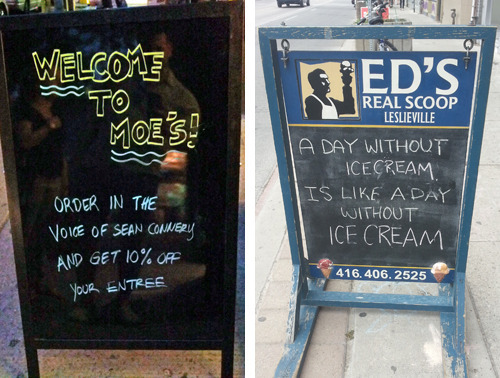 WELCOME
TO
MOE'S!
ORDER IN THE
VOICE OF SEAN CONNERY
AND GET 10% OFF
YOUR ENTREE
ED'S
REAL SCOOP
LESLIEVILLE
A DAY WITHOUT
ICECREAM.
IS LIKE A DAY
WITHOUT
ICE CREAM
416.406.2525